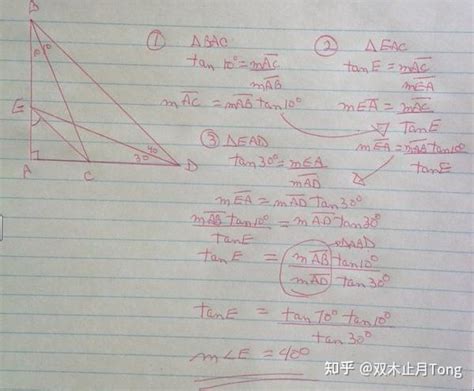 B
10° 10°
E
A
C
D
40
30
① ΔBAC
tan 10° = mAC
mAB
mAC = mAB tan 10°
② ΔEAC
tan E = mAC
mEA
mEA = mAC
tan E
mEA = mAB tan 10°
tan E
③ ΔEAD
tan 30° = mEA
mAD
mEA = mAD tan 30°
mAB tan 10° = mAD tan 30°
tan E
ΔABD
tan E = mAB tan 10°
mAD tan 30°
tan E = tan 70° tan 10°
tan 30°
m∠E = 40°
知乎 @双木止月Tong